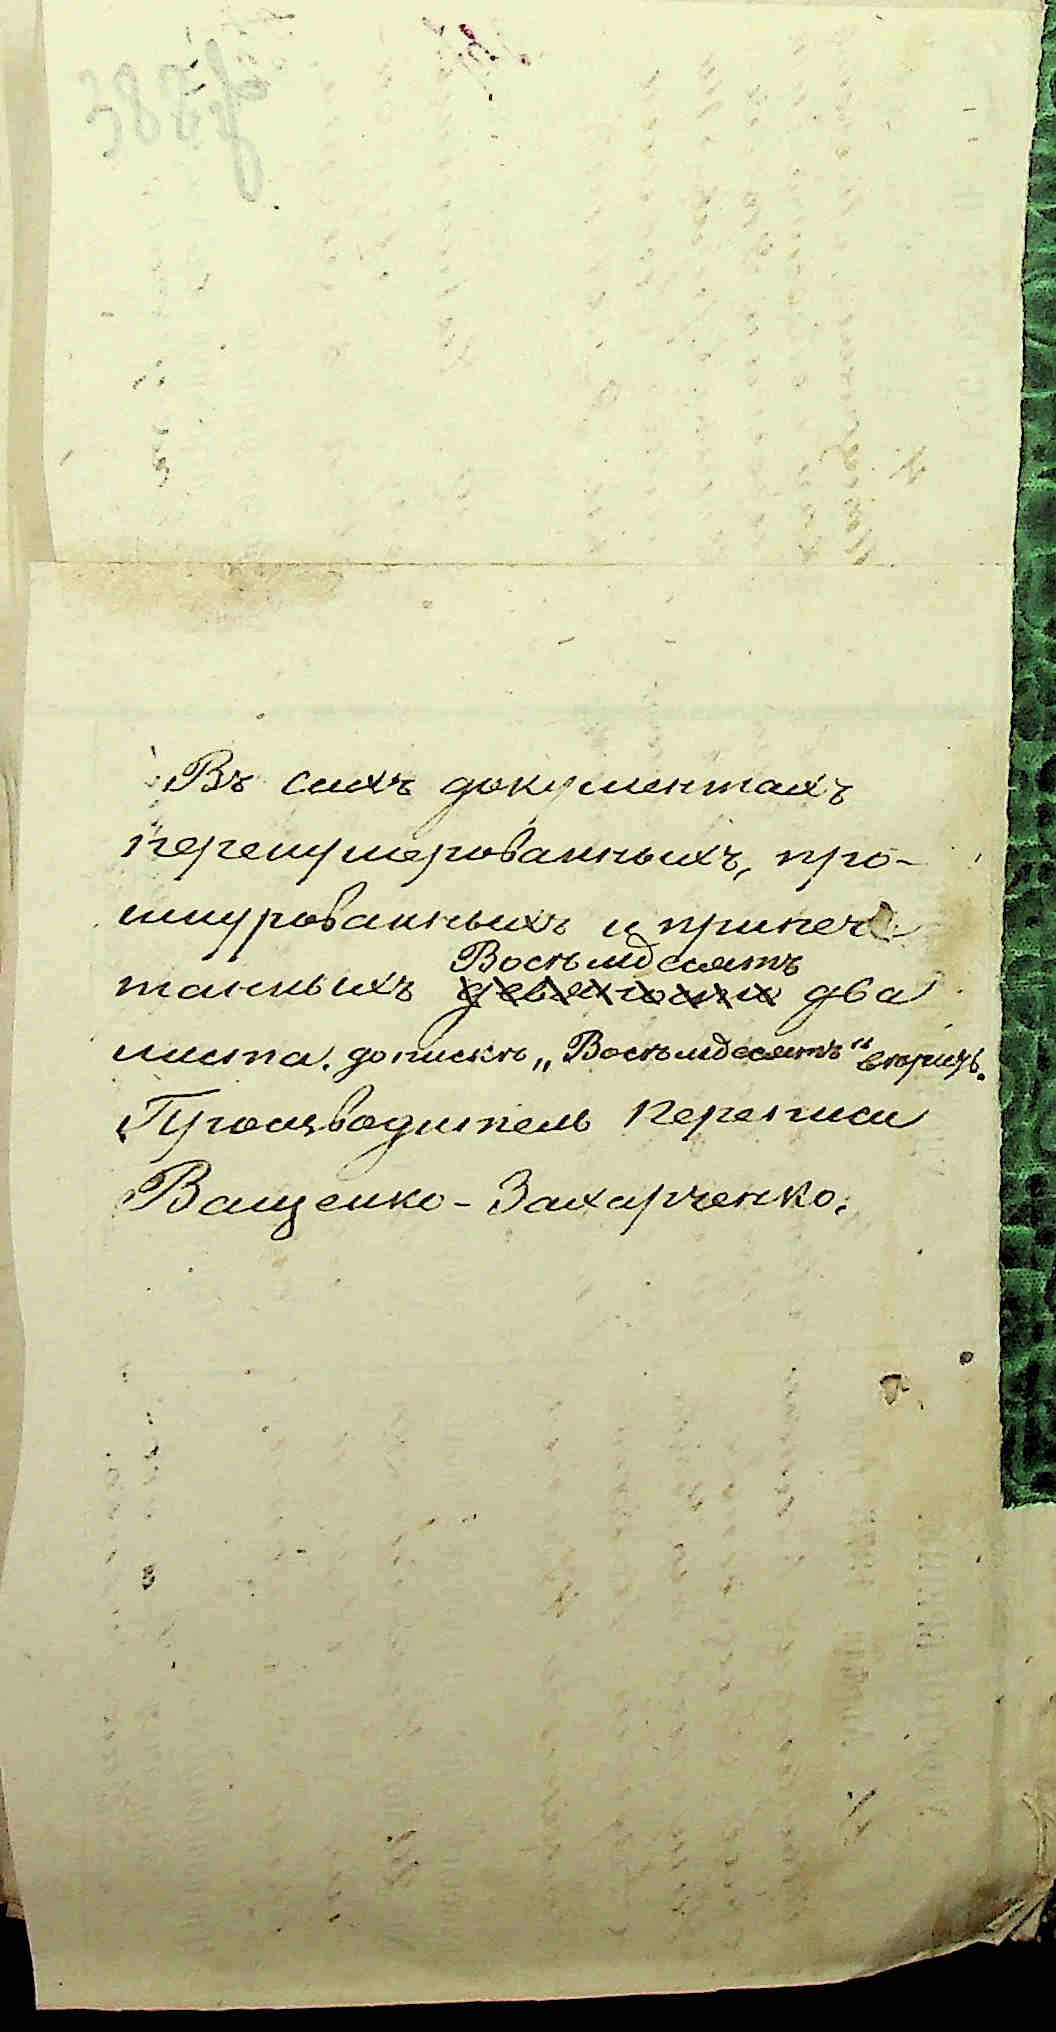 387
Въ сихъ документахъ
перенумерованныхъ, про-
шнурованныхъ и припеча
Восемьдесятъ
танныхъ девяносто два
листа. допискѣ „Восемьдесятъ“ вѣрить.
Производитель переписи
Ващенко-Захарченко.